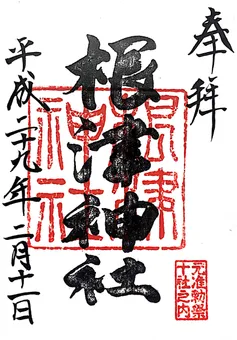 奉拝
根津神社
平成二十九年 二月十一日
根津神社
元准勅祭
十社之内